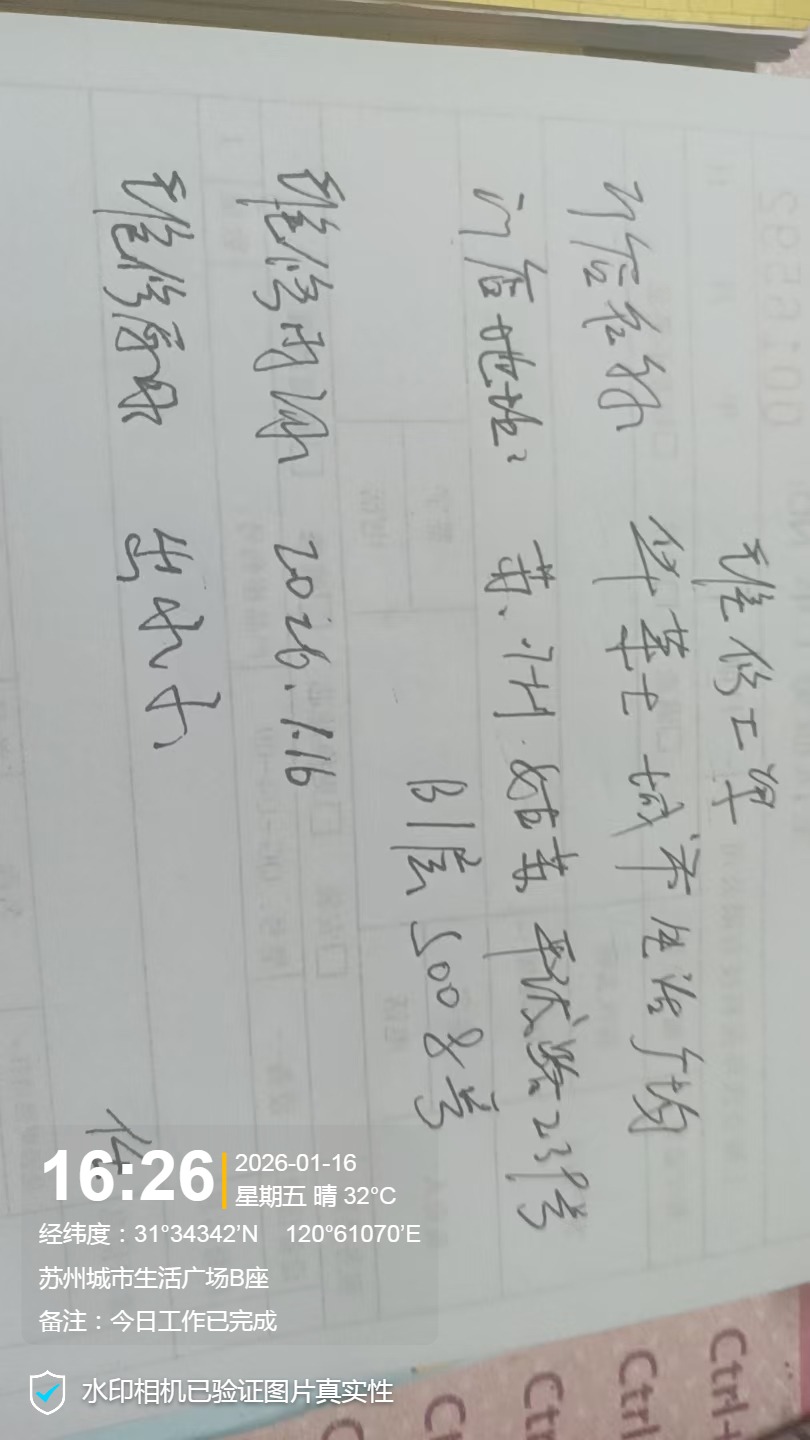 维修工单
门店名称 华莱士城市生活广场
门店地址: 苏州姑苏
B1层5008号
维修时间 2026.1.16
维修原因 出水小
16:26
2026-01-16
星期五 晴 32°C
经纬度：31°34342’N 120°61070’E
苏州城市生活广场B座
备注：今日工作已完成
水印相机已验证图片真实性
Ctrl+
Ctrl
Ctr
Ct
C